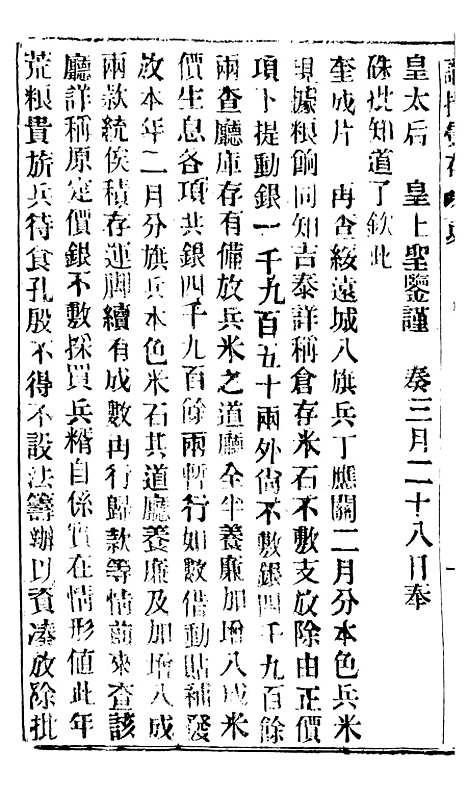 皇太后　皇上聖鑒謹　奏三月二十八日奉
硃批知道了欽此
奎成片　再查綏遠城八旗兵丁應關二月分本色兵米
現據粮餉同知吉泰詳稱倉存米石不敷支放除由正價
項下提動銀一千九百五十兩外尙不敷銀四千九百餘
兩查廳庫存有備放兵米之道廳全半養廉加增八成米
價生息各項共銀四千九百餘兩暫行如數借動貼補發
放本年二月分旗兵本色米石其道廳養廉及加增八成
兩款統俟積存運脚續有成數再行歸款等情前來查該
廳詳稱原定價銀不敷採買兵糈自係實在情形値此年
荒粮貴旗兵待食孔殷不得不設法籌辦以資湊放除批